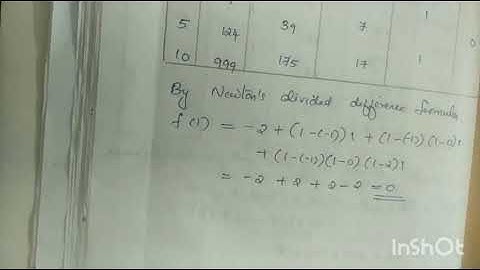 1
5 124 39 7 0
10 999 175 17 1
By Newton's divided difference formula
f(1) = -2 + (1-(-1))1 + (1-(-1))(1-0)1
+ (1-(-1))(1-0)(1-2)1
= -2 + 2 + 2 - 2 = 0
InShOt